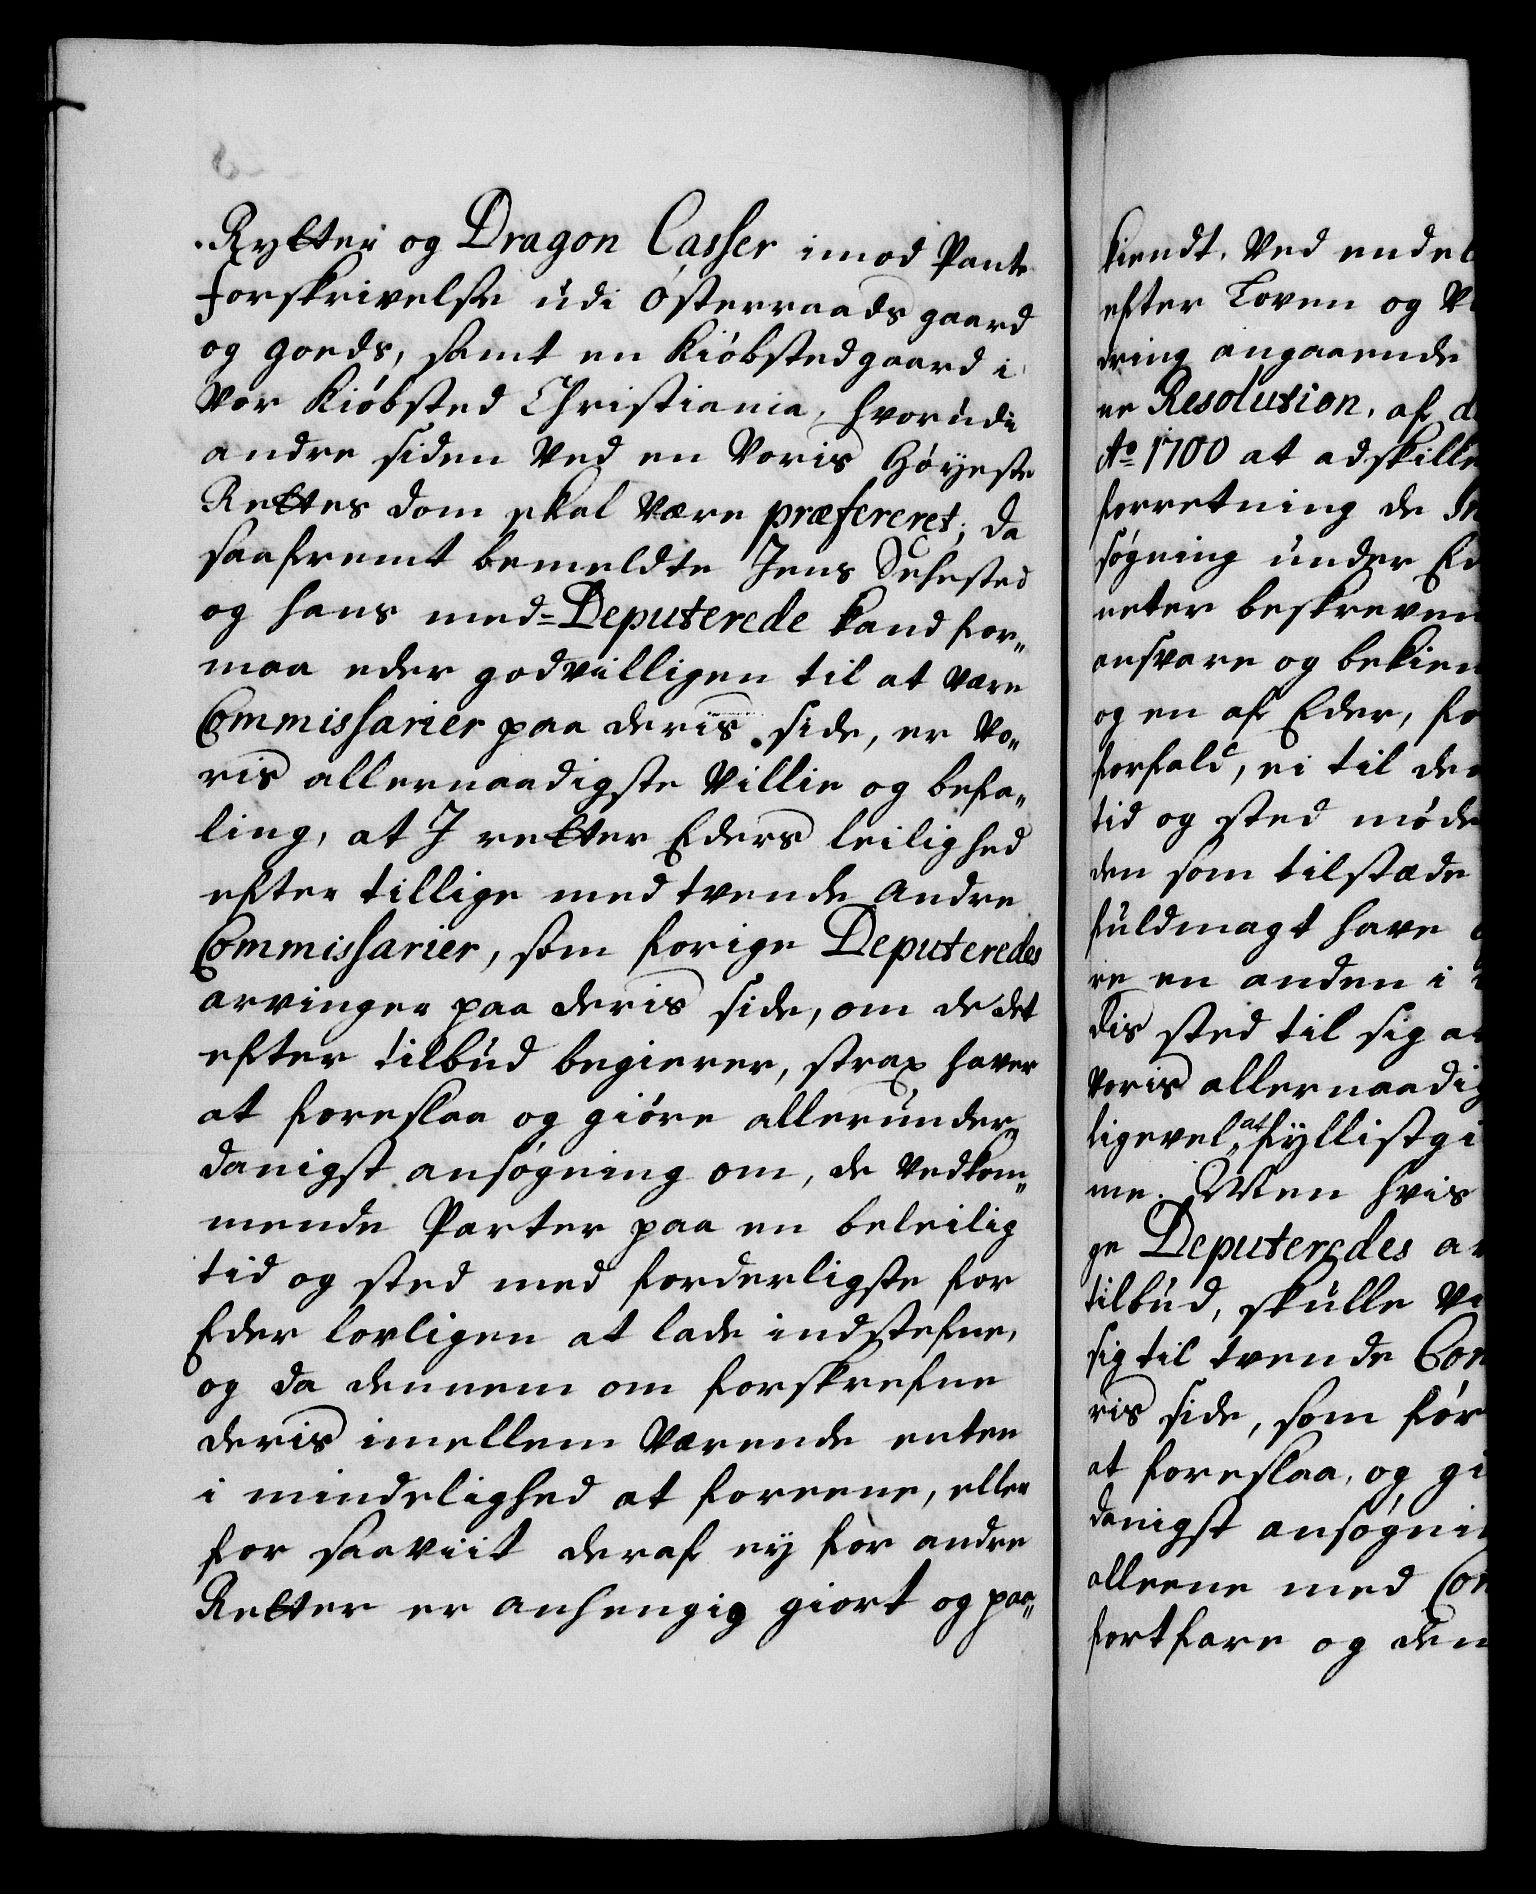 Rytter og Dragon Casser imod Pante
forskrivelse udi Østerraads gaard
og goeds, samt en Kiöbstedgaard i
Vor Kiöbsted Christiania, hvorudi
andre siden Ved en Voris Höyeste
Rettes dom skal være præfereret; da
saafremt bemeldte Jens Sehested
og hans med=Deputerede kand for„
maa eder godvilligen til at være
Commissarier paa deris side, er Vo„
ris allernaadigste Villie og befa„
ling, at J retter Eders leilighed
efter tillige med tvende andre
Commissarier, som forige Deputeredes
arvinger paa deris side, om de det
efter tilbud begierer, strax haver
at foreslaa og giöre allerunder„
danigst ansögning om, de vedkom„
mende Parter paa en beleilig
tid og sted med forderligste for
Eder lovligen at lade indstefne,
og da dennem om forskrefne
deris imellem Værende enten
i mindelighed at foreene, eller
for saaviit deraf ey for andre
Retter er anhengig giort og paa„
kiendt, Ved endel
efter Loven og V
dring angaaende
ne Resolution, af d
Ao 1700 at adskille
forretning de In
sögning under Ed
neter beskreven
ansvare og bekien
og en af Eder, fo
forfald, ei til de
tid og sted möde
den som tilstæde
fuldmagt have
re en anden i
dis sted til sig a
Voris allernaadig
ligevel at fyllistgi
me. Men hvis
ge Deputeredes ar
tilbud, skulle Ve
sig til tvende Com
ris side, som för
at foreslaa, og gi
danigst ansögnin
alleene med Com
fortfare og den